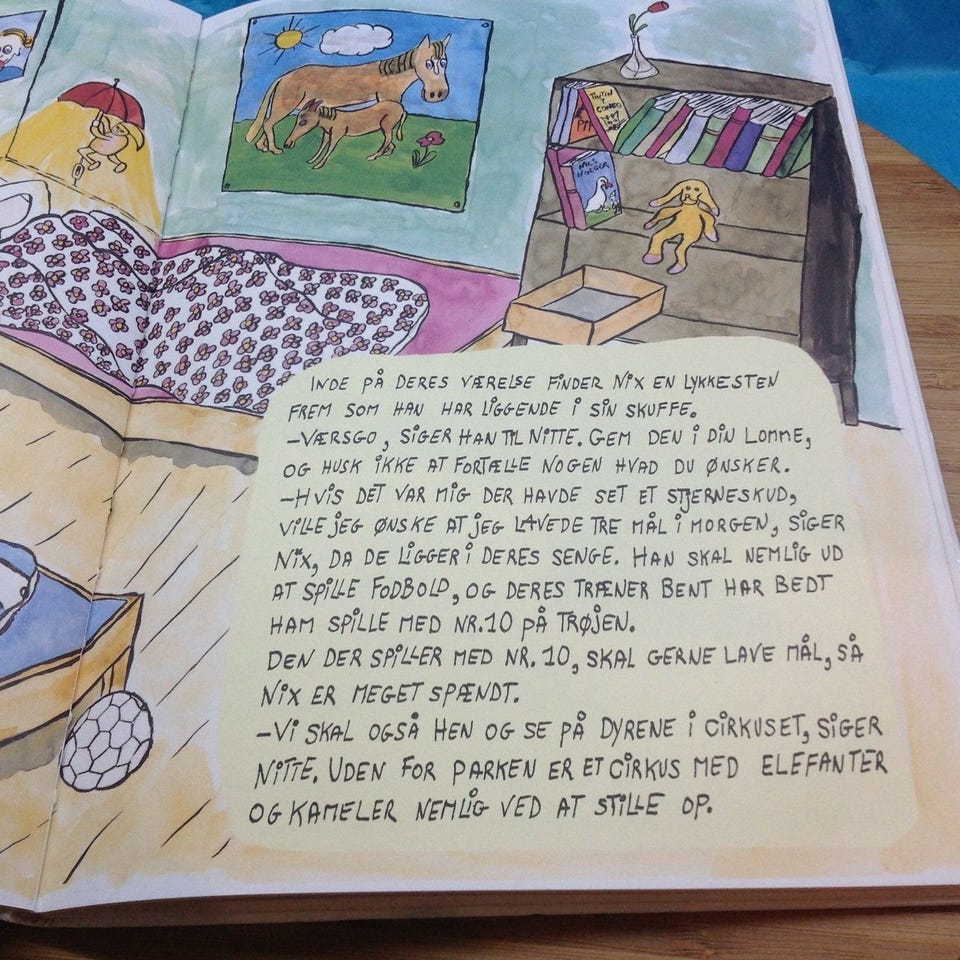 TINTIN
I
CONGO
NILS
HOLGER
INDE PÅ DERES VÆRELSE FINDER NIX EN LYKKESTEN
FREM SOM HAN HAR LIGGENDE I SIN SKUFFE.
-VÆRSGO, SIGER HAN TIL NITTE. GEM DEN I DIN LOMME,
OG HUSK IKKE AT FORTÆLLE NOGEN HVAD DU ØNSKER.
-HVIS DET VAR MIG DER HAVDE SET ET STJERNESKUD,
VILLE JEG ØNSKE AT JEG LAVEDE TRE MÅL I MORGEN, SIGER
NIX, DA DE LIGGER I DERES SENGE. HAN SKAL NEMLIG UD
AT SPILLE FODBOLD, OG DERES TRÆNER BENT HAR BEDT
HAM SPILLE MED NR.10 PÅ TRØJEN.
DEN DER SPILLER MED NR. 10, SKAL GERNE LAVE MÅL, SÅ
NIX ER MEGET SPÆNDT.
-VI SKAL OGSÅ HEN OG SE PÅ DYRENE I CIRKUSET, SIGER
NITTE. UDEN FOR PARKEN ER ET CIRKUS MED ELEFANTER
OG KAMELER NEMLIG VED AT STILLE OP.